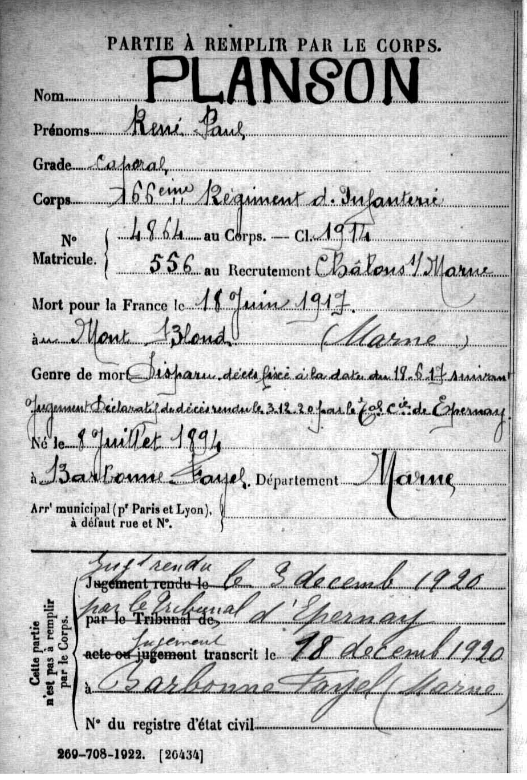 PARTIE À REMPLIR PAR LE CORPS.
Nom PLANSON
Prénoms René Paul
Grade caporal
Corps 166eme Régiment d. Infanterie
N° Matricule. { 4864 au Corps. — Cl. 1914
556 au Recrutement Châlons s/ Marne
Mort pour la France le 18 Juin 1917.
à au Mont Blond (Marne)
Genre de mort Disparu. décès fixé à la date du 18.6.17 suivant
Jugement Déclaratif de décès rendu le 3.12.20 par le Tal Cil de Epernay.
Né le 8 Juillet 1894
à Barbonne-Fayel. Département Marne
Arrt municipal (pr Paris et Lyon),
à défaut rue et N°.
Cette partie n'est pas à remplir par le Corps.
Jugt rendu
Jugement rendu le le 3 decemb 1920
par le Tribunal
par le Tribunal de d'Epernay
jugement
acte ou jugement transcrit le 18 decemb 1920
à Barbonne Fayel (Marne)
N° du registre d'état civil
269-708-1922. [26434]